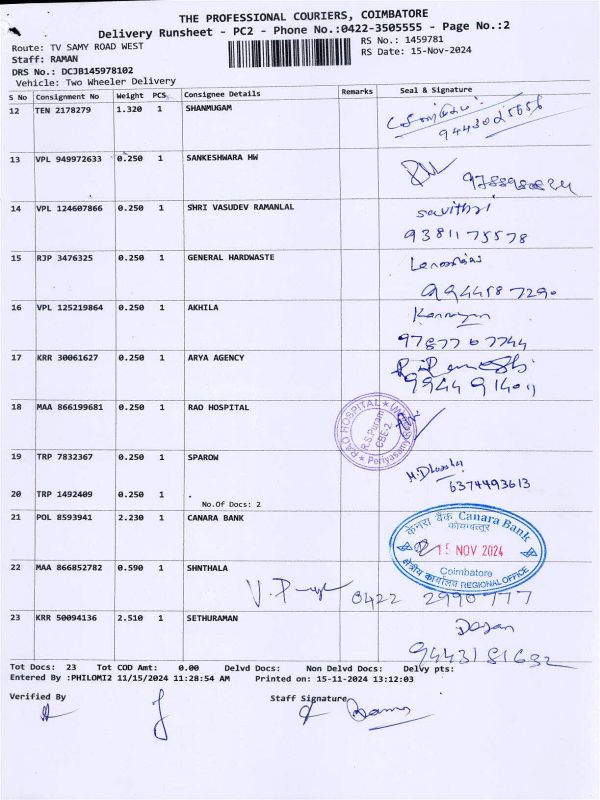 THE PROFESSIONAL COURIERS, COIMBATORE
Delivery Runsheet - PC2 - Phone No.:0422-3505555 - Page No.:2
Route: TV SAMY ROAD WEST
RS No.: 1459781
Staff: RAMAN
RS Date: 15-Nov-2024
DRS No.: DCJB145978102
Vehicle: Two Wheeler Delivery
S No Consignment No Weight PCS Consignee Details Remarks Seal & Signature
12 TEN 2178279 1.320 1 SHANMUGAM
9443025656
13 VPL 949972633 0.250 1 SANKESHWARA HW
14 VPL 124607866 0.250 1 SHRI VASUDEV RAMANLAL savithri
9381175578
15 RJP 3476325 0.250 1 GENERAL HARDWASTE
9944587290
16 VPL 125219864 0.250 1 AKHILA
9787767744
17 KRR 30061627 0.250 1 ARYA AGENCY
18 MAA 866199681 0.250 1 RAO HOSPITAL
RAO HOSPITAL
R.S.Puram
CBE-2.
19 TRP 7832367 0.250 1 SPAROW
6374493613
20 TRP 1492409 0.250 1 .
No.Of Docs: 2
21 POL 8593941 2.230 1 CANARA BANK
केनरा बैंक Canara Bank
कोयम्बत्तूर
15 NOV 2024
Coimbatore
क्षेत्रीय कार्यालय REGIONAL OFFICE
22 MAA 866852782 0.590 1 SHNTHALA
0422 2990777
23 KRR 50094136 2.510 1 SETHURAMAN
9443181632
Tot Docs: 23 Tot COD Amt: 0.00 Delvd Docs: Non Delvd Docs: Delvy pts:
Entered By :PHILOMI2 11/15/2024 11:28:54 AM Printed on: 15-11-2024 13:12:03
Verified By Staff Signature